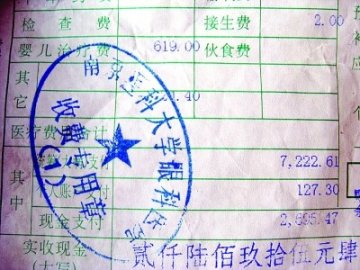 检查费 接生费 2.00
婴儿治疗费 619.00 伙食费
其它 .40
医疗费 合计
其中 支付 7,222.61
支付 127.30
现金支付
实收现金 贰仟陆佰玖拾伍元肆
(大写)
南京医科大学眼科医
收费专用章
(1)